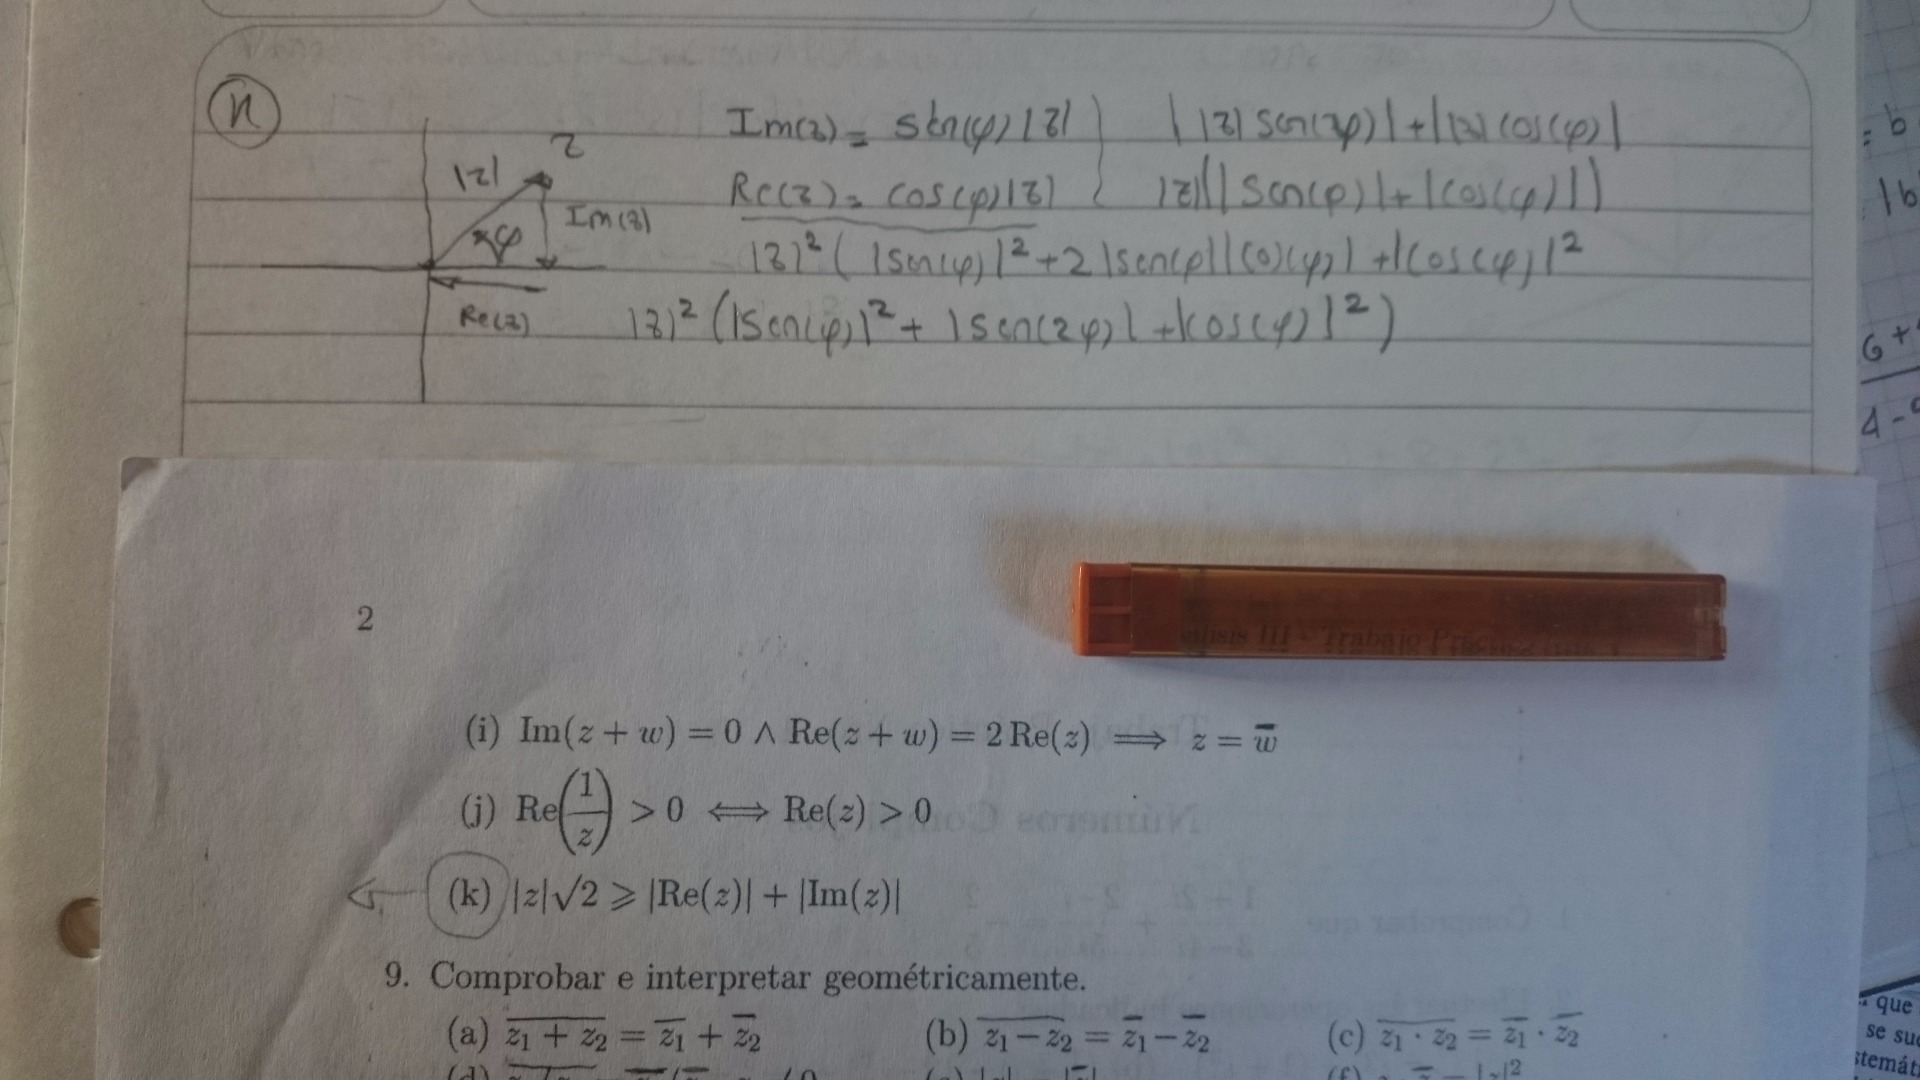 (k)
Im(z) = sen(φ)|z| } | |z| sen(φ)| + ||z| cos(φ)|
Re(z) = cos(φ)|z| } |z|(|sen(φ)| + |cos(φ)|)
|z|² ( |sen(φ)|² + 2 |sen(φ)||cos(φ)| + |cos(φ)|²
|z|² (|sen(φ)|² + |sen(2φ)| + |cos(φ)|²)
z
|z|
φ
Im(z)
Re(z)
= b
|b
6 +
4 -
2
álisis III - Trabajo
(i) Im(z + w) = 0 ∧ Re(z + w) = 2 Re(z) ⟹ z = w̅
(j) Re(1/z) > 0 ⟺ Re(z) > 0
(k) |z|√2 ⩾ |Re(z)| + |Im(z)|
9. Comprobar e interpretar geométricamente.
(a) \overline{z₁ + z₂} = \overline{z₁} + \overline{z₂} (b) \overline{z₁ − z₂} = \overline{z₁} − \overline{z₂} (c) \overline{z₁ · z₂} = \overline{z₁} · \overline{z₂}
que
se su
stemát